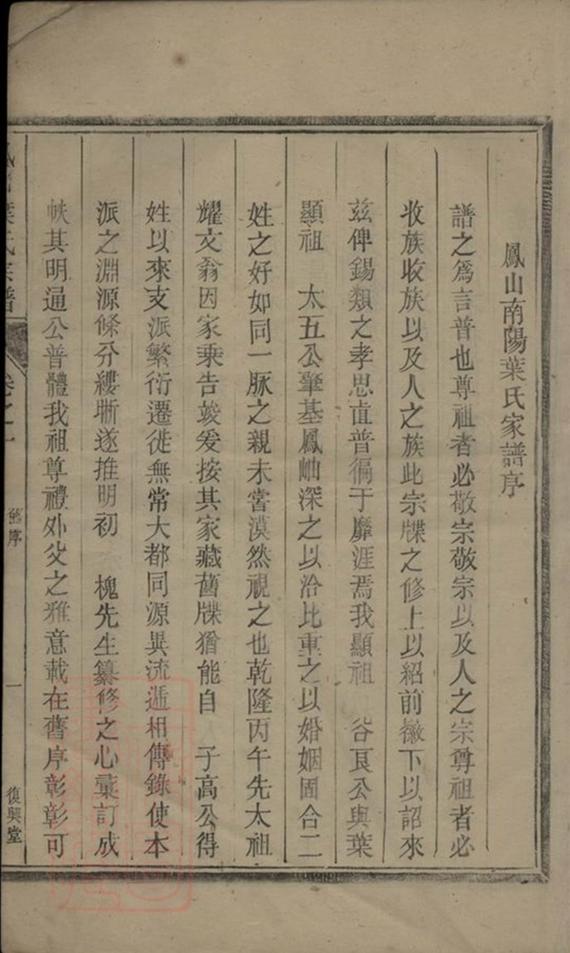 鳳山南陽葉氏家譜序
譜之爲言普也尊祖者必敬宗敬宗以及人之宗尊祖者必
收族收族以及人之族此宗牒之修上以紹前徽下以詔來
茲俾錫類之孝思直普徧于靡涯焉我顯祖 谷艮公與葉
顯祖 太五公肇基鳳岫深之以洽比重之以婚姻固合二
姓之好如同一脉之親未甞漠然視之也乾隆丙午先太祖
耀文翁因家乘告竣爰按其家藏舊牒猶能自 子高公得
姓以來支派繁衍遷徙無常大都同源異流遞相傳錄使本
派之淵源條分縷晰遂推明初 槐先生纂修之心彙訂成
帙其明逼公普體我祖尊禮外父之雅意載在舊序彰彰可
葉氏宗譜
卷之一
舊序
一
復興堂